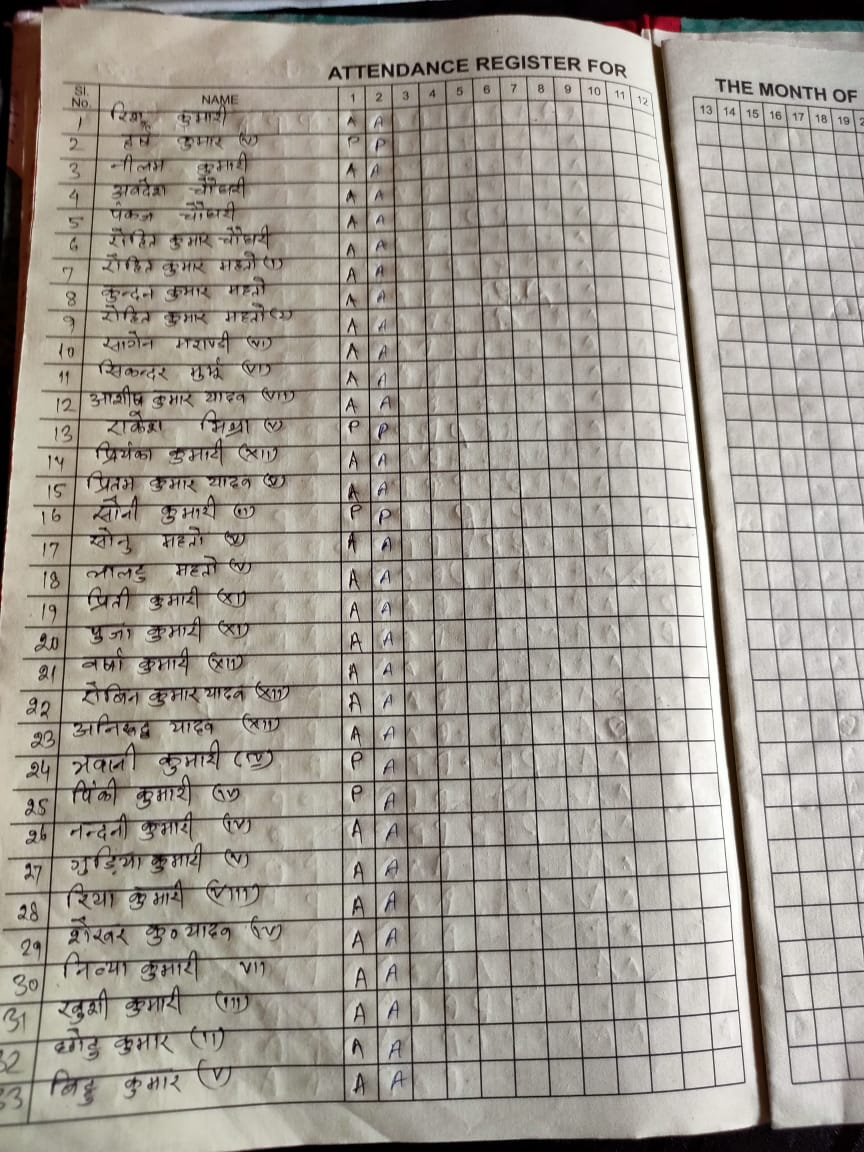 ATTENDANCE REGISTER FOR
THE MONTH OF
Sl. No. NAME 1 2 3 4 5 6 7 8 9 10 11 12 13 14 15 16 17 18 19
1 कुमारी A A
2 हर्ष कुमार (V) P P
3 नीलम कुमारी A A
4 अवदेश चौधरी A A
5 पंकज चौधरी A A
6 रोहित कुमार चौधरी A A
7 रोहित कुमार महतो (1) A A
8 कुन्दन कुमार महतो A A
9 रोहित कुमार महतो (2) A A
10 सागेन मराण्डी (VI) A A
11 सिकन्दर मुर्मू (VI) A A
12 आशीष कुमार यादव (VII) A A
13 राकेश मिश्रा (V) P P
14 प्रियंका कुमारी (XII) A A
15 प्रितम कुमार यादव (V) A A
16 सोनी कुमारी (II) P P
17 सोनु महतो (V) A A
18 लालटु महतो (V) A A
19 प्रिती कुमारी (XI) A A
20 पुजा कुमारी (XI) A A
21 वर्षा कुमारी (XII) A A
22 रोबिन कुमार यादव (XII) A A
23 अनिरूद्ध यादव (XII) A A
24 भवानी कुमारी (IV) P A
25 पिंकी कुमारी (IV) P A
26 नन्दनी कुमारी (IV) A A
27 गुड़िया कुमारी (V) A A
28 रिया कुमारी (VIII) A A
29 शेखर कु० यादव (IV) A A
30 कुमारी VII A A
31 खुशी कुमारी (III) A A
32 छोटु कुमार (II) A A
33 कुमार (V) A A